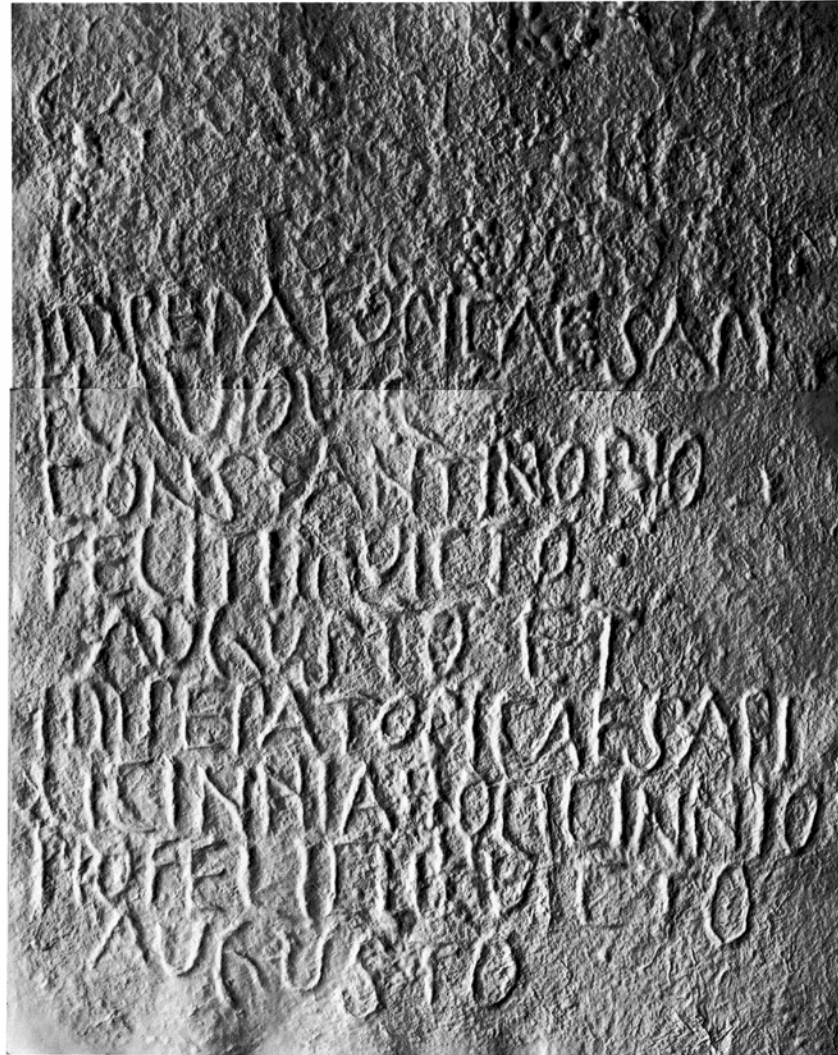 IMPERATORI CAESARI
FLAVIO
CONSTANTINO PIO
FELICI INVICTO
AVGVSTO ET
IMPERATORI CAESARI
LICINNIANO LICINNIO
PIO FELICI INVICTO
AVGVSTO